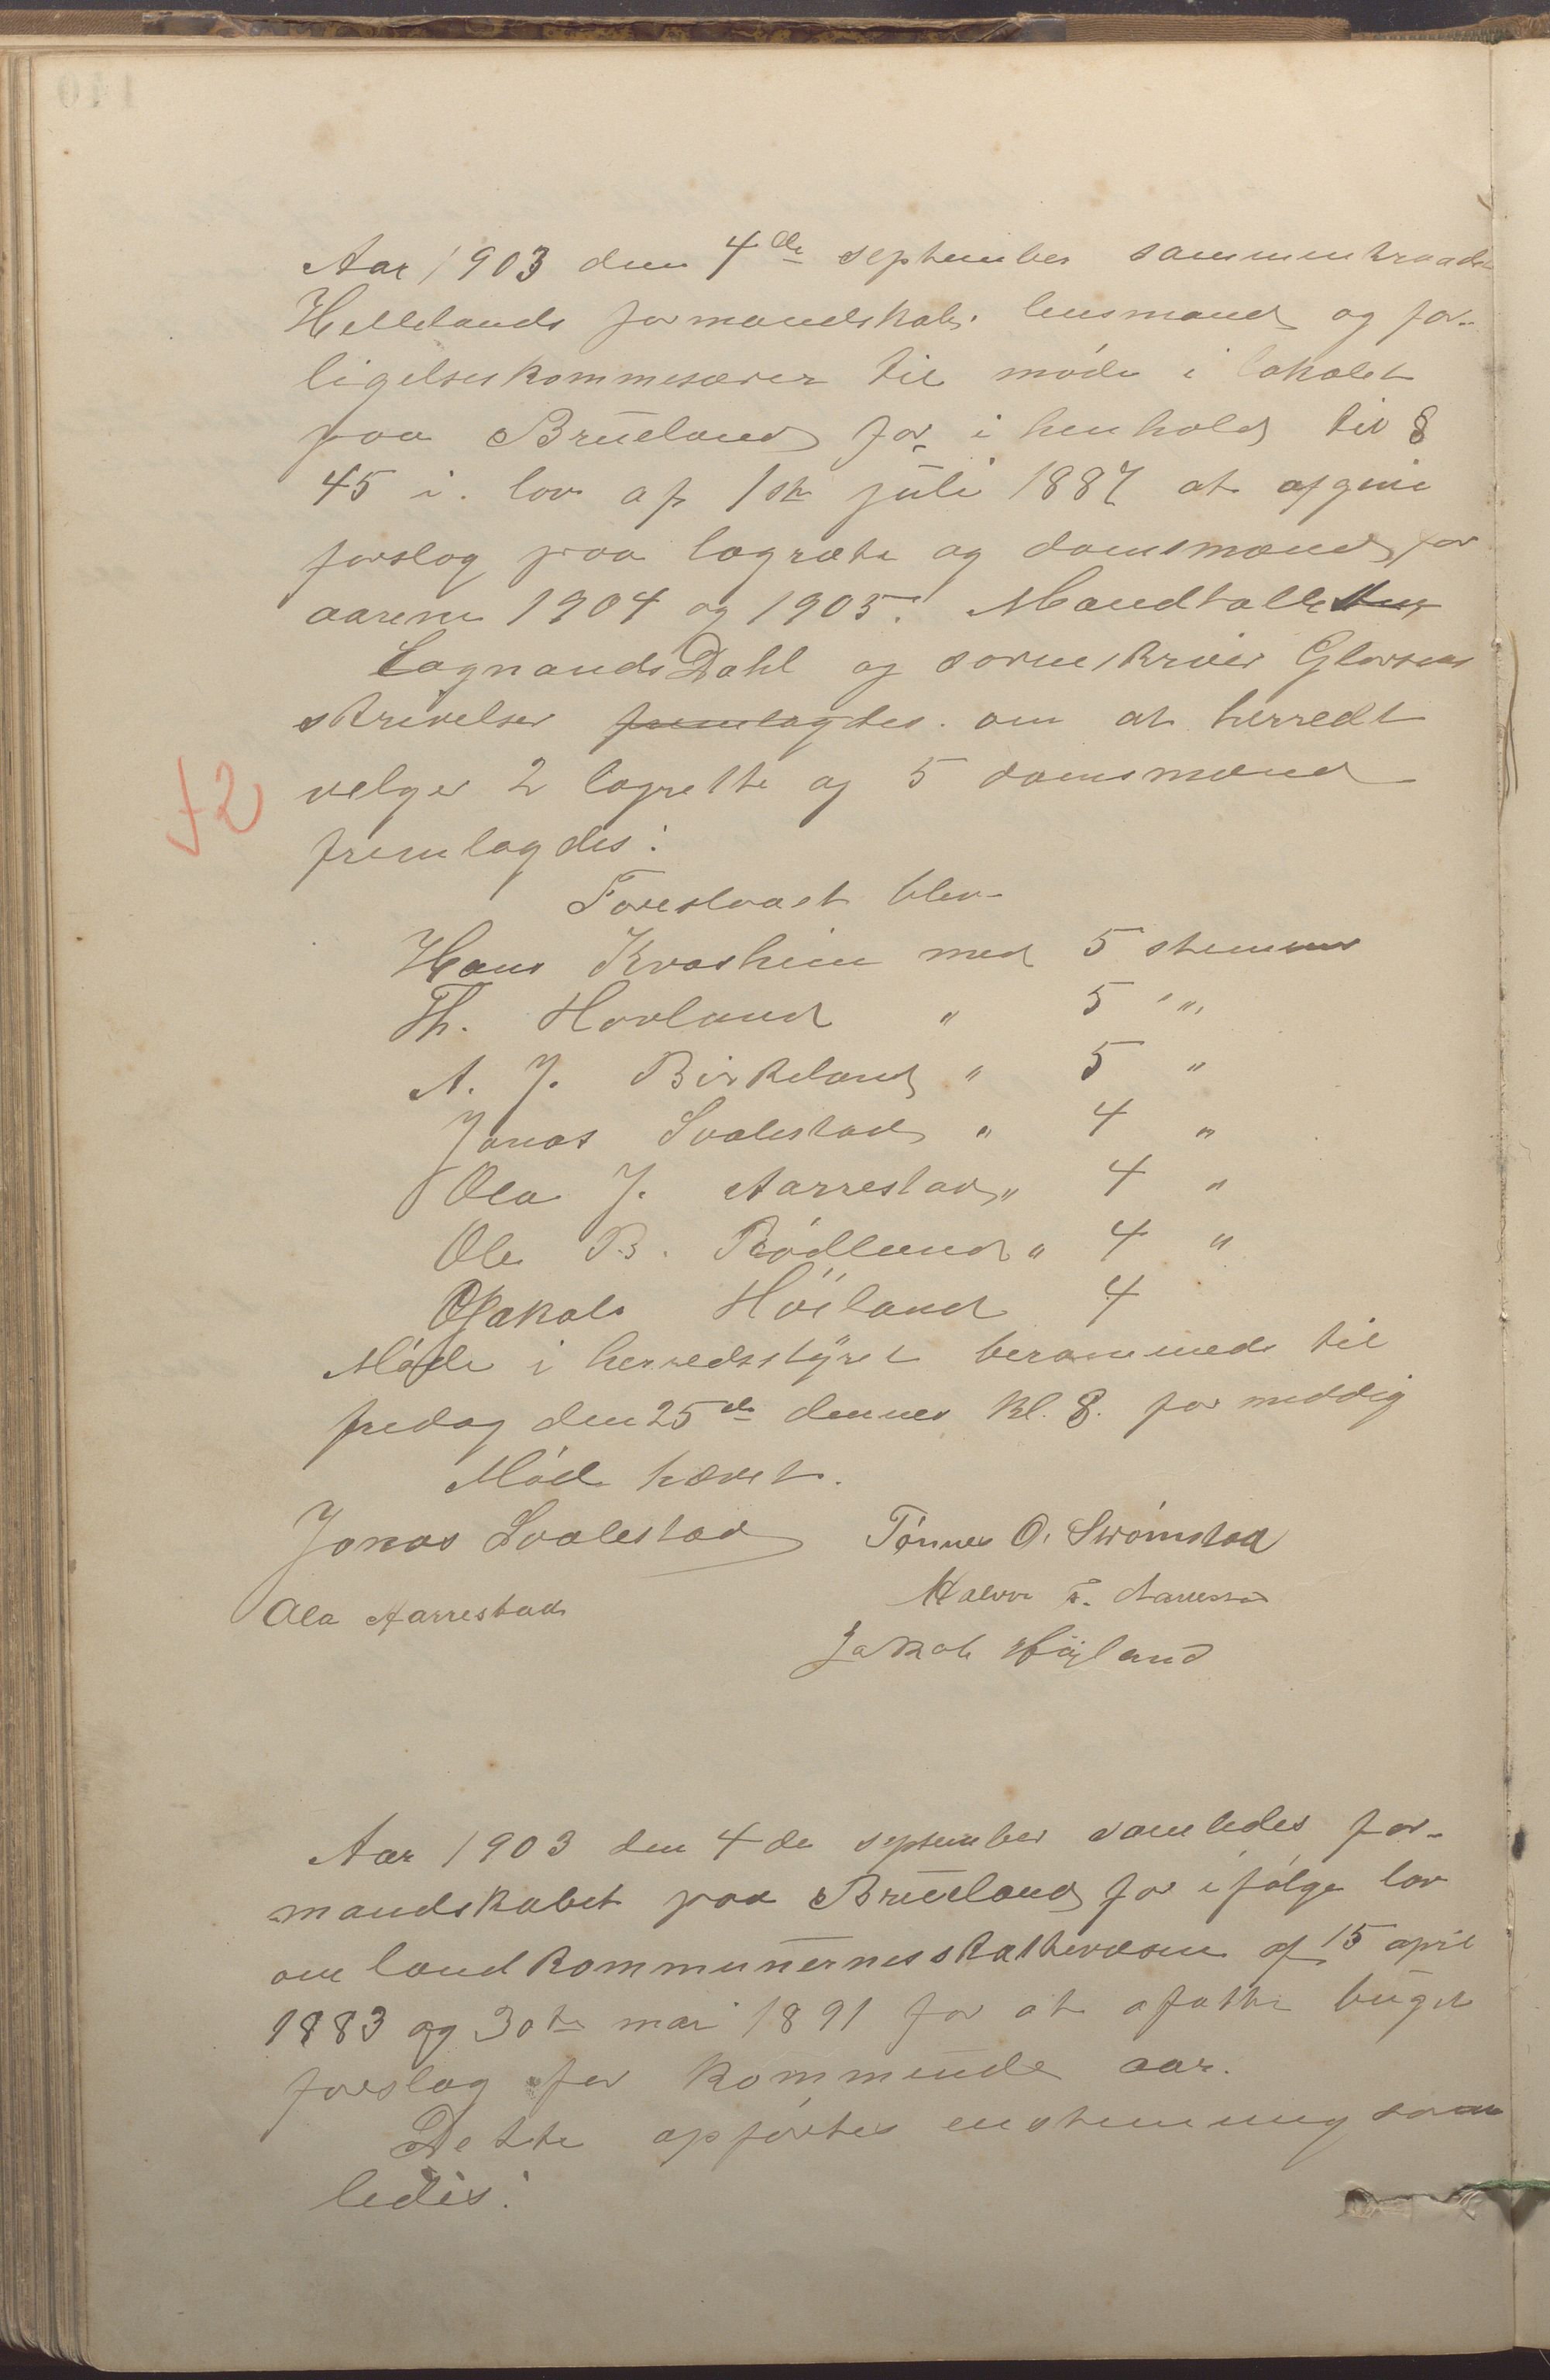 Aar 1903 den 4de september sammentraadte
Hellelands formandskab. lensmand og for-
ligelseskommesærer til møde i lokalet
paa Brueland for i henhold til §
45 i. lov af 1ste juli 1887 at afgive
forslag paa lagrette og domsmænd for
aarene 1904 og 1905. Mandtallet
Lagmands Dahl og sorenskriver
skrivelser fremlagdes. om at herredet
velger 2 lagrette og 5 domsmænd
fremlagdes:
Foreslaaet blev
Hans Kvasheim med 5 stemmer
Th. Hovland " 5 "
A. J. Birkeland " 5 "
Jonas Svalestad " 4 "
Ola J. Aarrestad " 4 "
Ole B. Rødland " 4 "
Jakob Høiland 4
Møde i herredsstyret berammede til
fredag den 25de dennes kl. 8. for middag
Møde hævet.
Jonas Svalestad Tønnes O. Svømstad
Ola Aarrestad
Jakob Højland
Aar 1903 den 4de september samledes for-
mandskabet paa Brueland for ifølge lov
om landkommunernes skattevæsen af 15 april
1883 og 30te mai 1891 for at afatte buget
forslag for kommende aar.
Dette opførtes enstemmig saa
ledes:
+2
110